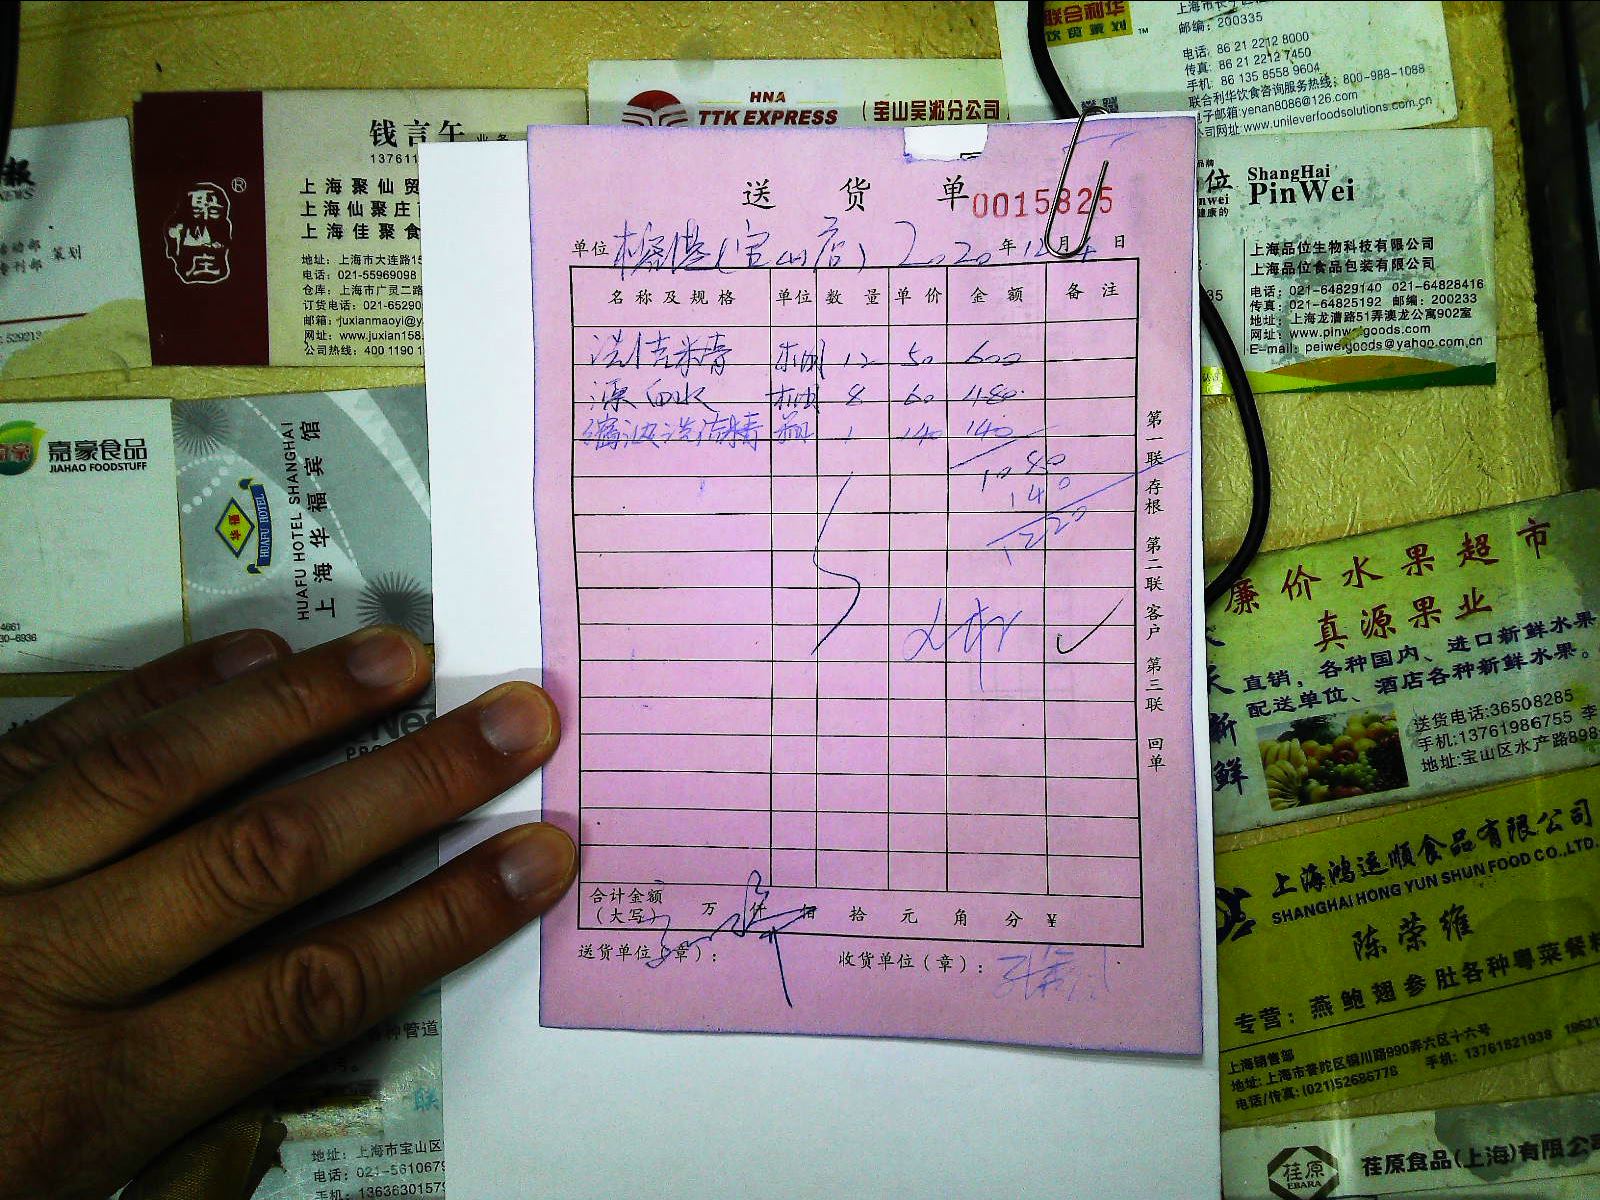 联合利华
饮食策划
TM
邮编: 200335
电话: 86 21 2212 8000
传真: 86 21 2212 7450
手机: 86 135 8558 9604
联合利华饮食咨询服务热线: 800-988-1088
电子邮箱:yenan8086@126.com
公司网址:www.unileverfoodsolutions.com.cn
HNA
TTK EXPRESS
(宝山吴淞分公司
钱言午 业务
13761
聚仙庄
®
上海聚仙贸
上海仙聚庄
上海佳聚食
地址: 上海市大连路15
电话: 021-55969098
仓库: 上海市广灵二路
订货电话: 021-65290
邮箱: juxianmaoyi@y
网址: www.juxian158
公司热线: 400 1190 1
策划
ShangHai
PinWei
上海品位生物科技有限公司
上海品位食品包装有限公司
电话: 021-64829140 021-64828416
传真: 021-64825192 邮编: 200233
地址: 上海龙漕路51弄澳龙公寓902室
网址: www.pinweigoods.com
E-mail: peiwei.goods@yahoo.com.cn
送货单
0015825
单位 (宝山店) 2020年12月4日
名称及规格 单位 数量 单价 金额 备注
洗洁精 桶 12 50 600
漂白水 桶 8 60 480
洗洁精 瓶 1 140 140
1080
140
1220
第一联 存根 第二联 客户 第三联 回单
合计金额
(大写) 万 仟 佰 拾 元 角 分 ¥
送货单位(章):
收货单位(章):
嘉豪食品
JIAHAO FOODSTUFF
4661
30-6936
HUAFU HOTEL
HUAFU HOTEL SHANGHAI
上海华福宾馆
廉价水果超市
真源果业
直销,各种国内、进口新鲜水果
配送单位、酒店各种新鲜水果。
新鲜
送货电话:36508285
手机:13761986755 李
地址:宝山区水产路898
上海鸿运顺食品有限公司
SHANGHAI HONG YUN SHUN FOOD CO.,LTD.
陈荣维
专营: 燕鲍翅参肚各种粤菜餐料
上海销售部
地址: 上海市普陀区铜川路990弄六区十六号
电话/传真: (021)52686778 手机: 13761821938
种管道
联
地址: 上海市宝山区
电话: 021-561067
手机: 1363630157
荏原
EBARA
荏原食品(上海)有限公